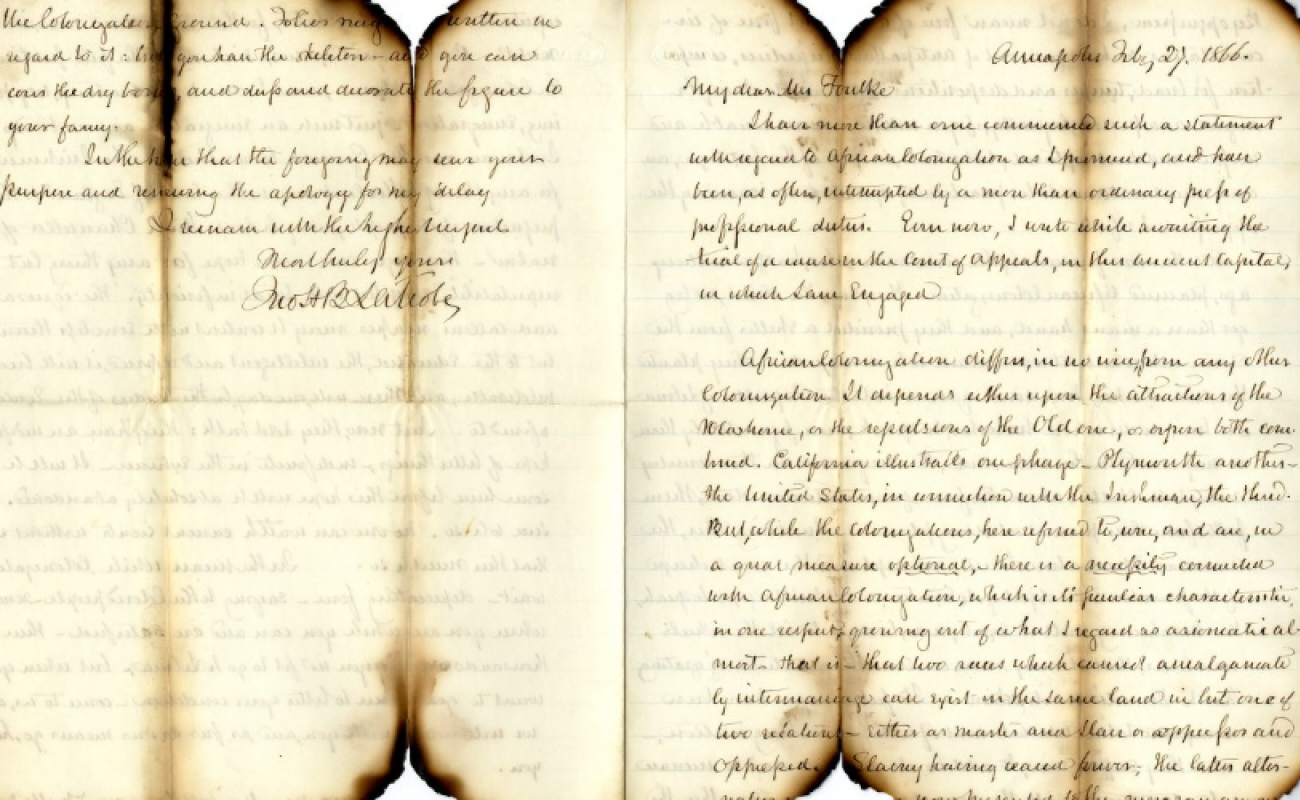 the Colonization ground. Folios might written in
regard to it: but you have the skeleton - and you can
cover the dry bones, and drape and decorate the figure to
your fancy.
In the hope that the foregoing may serve your
purpose and renewing the apology for my delay
I remain with the highest respect
Most truly yours
Jno H B Latrobe
Annapolis Feby 27. 1866.
My dear Mr Foulke
I have more than once commenced such a statement
with regard to African Colonization as I promised, and have
been, as often, interrupted by a more than ordinary press of
professional duties. Even now, I write while awaiting the
trial of a cause in the Court of Appeals, in this ancient Capital,
in which I am Engaged
African Colonization differs, in no wise, from any other
Colonization. It depends either upon the attractions of the
New home, or the repulsions of the Old one, or upon both com-
bined. California illustrates one phase - Plymouth another -
the United States, in connection with the Irishman, the third.
But, while the Colonizations, here referred to, were, and are, in
a great measure optional, - there is a necessity connected
with African Colonization, which is it's peculiar characteristic,
in one respect, growing out of what I regard as axiomatic al-
most - that is - that two races which cannot amalgamate
by intermarriage can exist in the same land in but one of
two relations - Either as master and Slave or oppressor and
oppressed. Slavery having ceased forever, the latter alter-